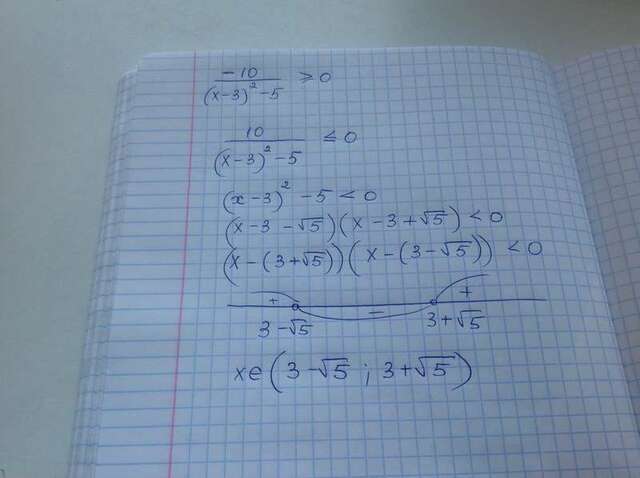 -10/((x-3)²-5) ≥ 0
10/((x-3)²-5) ≤ 0
(x-3)²-5 < 0
(x-3-√5)(x-3+√5) < 0
(x-(3+√5))(x-(3-√5)) < 0
+ − +
3-√5 3+√5
x∈(3-√5 ; 3+√5)